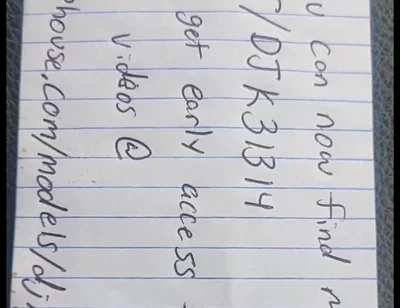 u can now find m
/DJK31314
get early access
videos @
house.com/models/dj